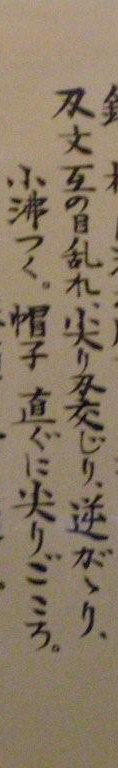 刄文互の目乱れ、尖り刄交じり、逆がゝり、
小沸つく。帽子 直ぐに尖りごころ。